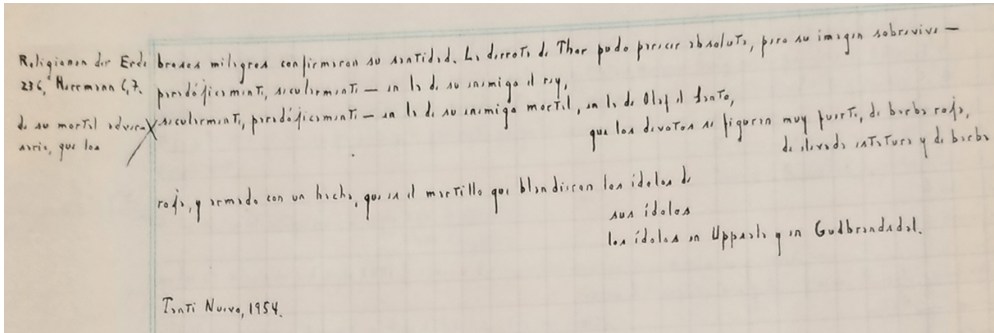 Religionen der Erde
236, Herrmann 6,7.
de su mortal adver-
sario, que los
brosos milagros confirmaron su santidad. La derrota de Thor pudo parecer absoluta, pero su imagen sobrevive —
paradójicamente, secularmente — en la de su enemigo el rey,
secularmente, paradójicamente — en la de su enemigo mortal, en la de Olaf el Santo,
que los devotos se figuran muy fuerte, de barba roja,
de elevada estatura y de barba
roja, y armado con un hacha, que es el martillo que blandieron los ídolos de
sus ídolos
los ídolos en Uppsala y en Gudbrandsdal.
Tanti Nuevo, 1954.